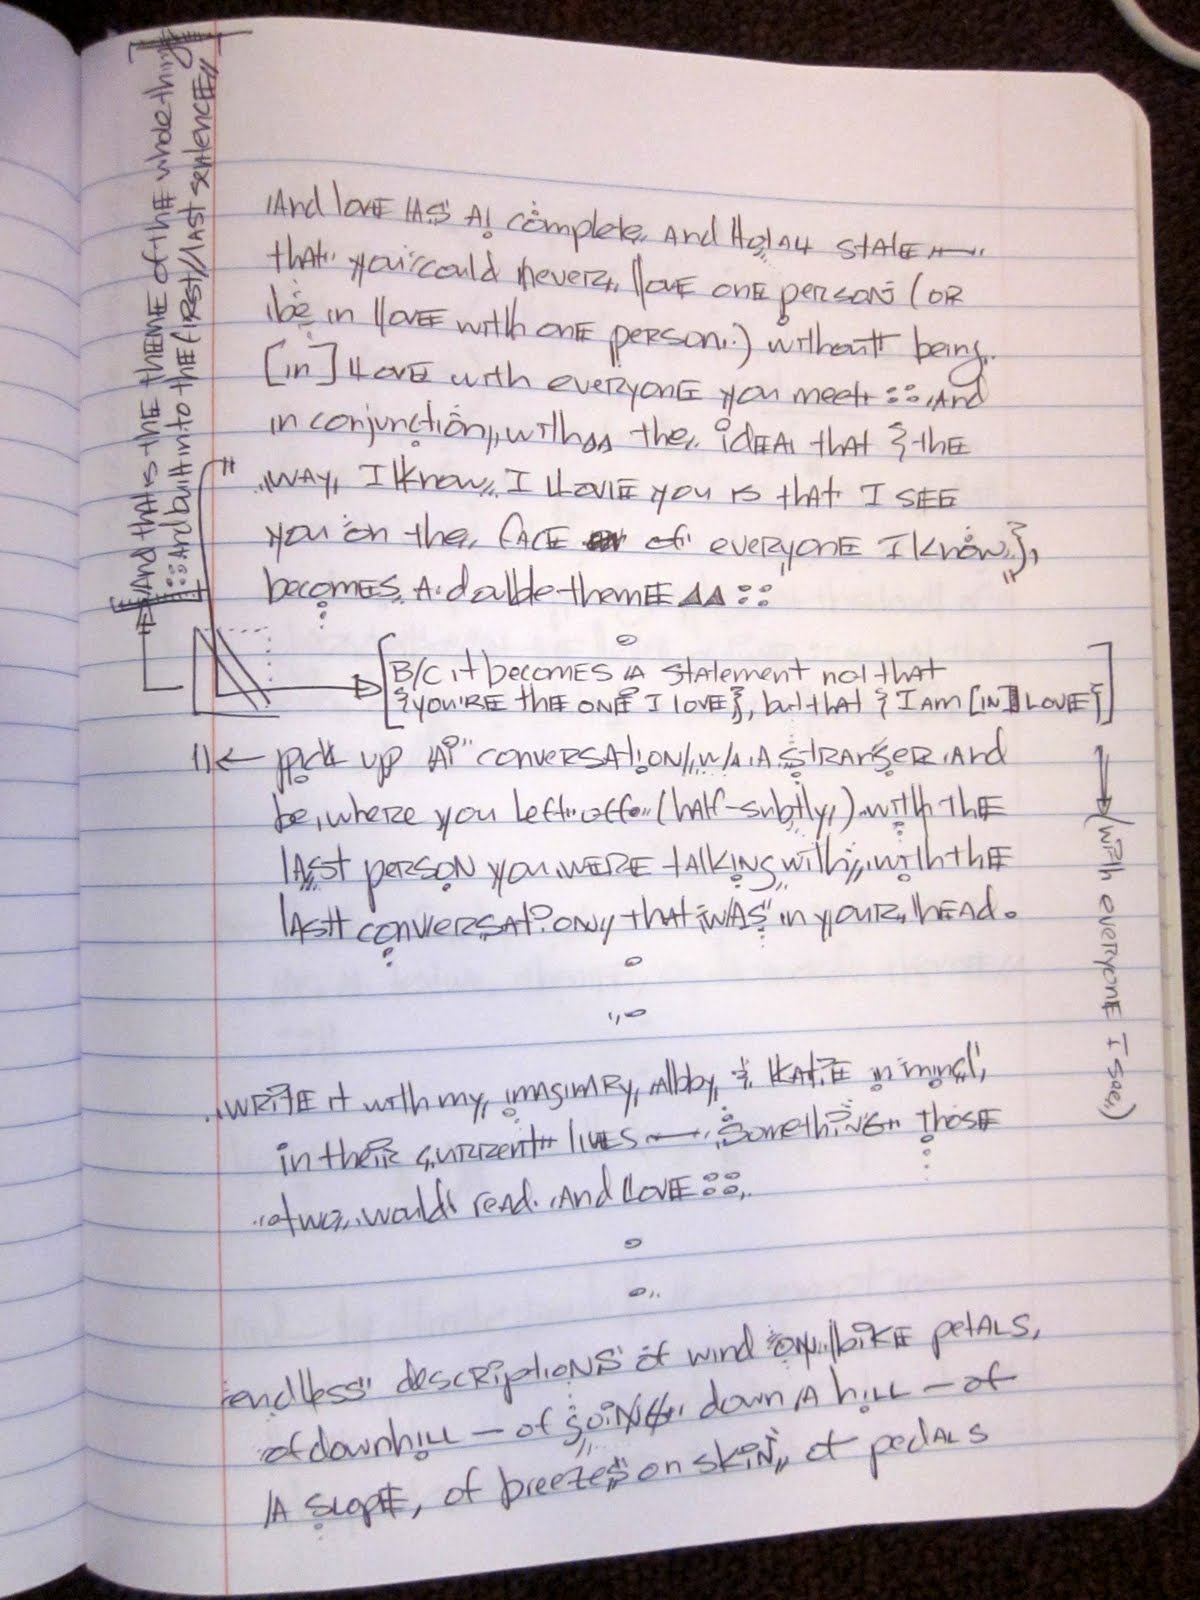 [And that is the theme of the whole thing
:: And built into the first/last sentence]
And love as a complete and holy state —
that you could never love one person (or
be in love with one person) without being
[in] love with everyone you meet :: And
in conjunction with the idea that {the
way I know I love you is that I see
you on the face of everyone I know},
becomes a double theme ::
[B/C it becomes a statement not that
{you're the one I love}, but that {I am [in] love}]
(with everyone I see)
pick up a conversation w/ a stranger and
be where you left off (half-subtly) with the
last person you were talking with, with the
last conversation that was in your head.
write it with my imaginary, abby, & katie in mind,
in their current lives — something those
two would read and love ::
endless descriptions of wind on bike petals,
of downhill — of going down a hill — of
a slope, of breezes on skin, of pedals